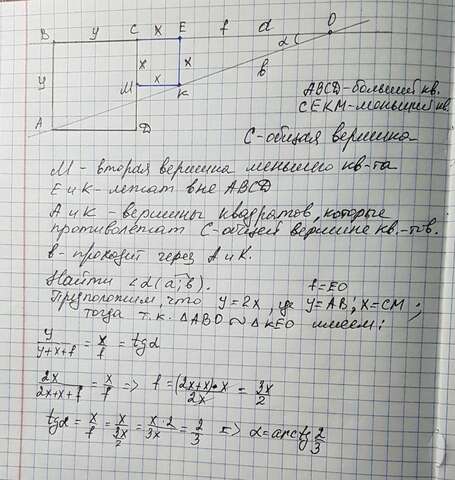 B y C x E f d O
α
y x x в
M x K
A D
ABCD-больший кв.
CEKM-меньший кв
C-общая вершина
M - вторая вершина меньшего кв-та
E и K - лежат вне ABCD
A и K - вершины квадратов, которые
противолежат C-общей вершине кв.-тов.
в - проходит через A и K.
Найти ∠α(a; в). f=EO
Предположим, что y=2x, где y=AB; x=CM;
тогда т.к. ΔABO ∾ ΔKEO имеем:
y/(y+x+f) = x/f = tgα
2x/(2x+x+f) = x/f => f = (2x+x)·x/2x = 3x/2
tgα = x/f = x/(3x/2) = x·2/3x = 2/3 => α=arctg 2/3